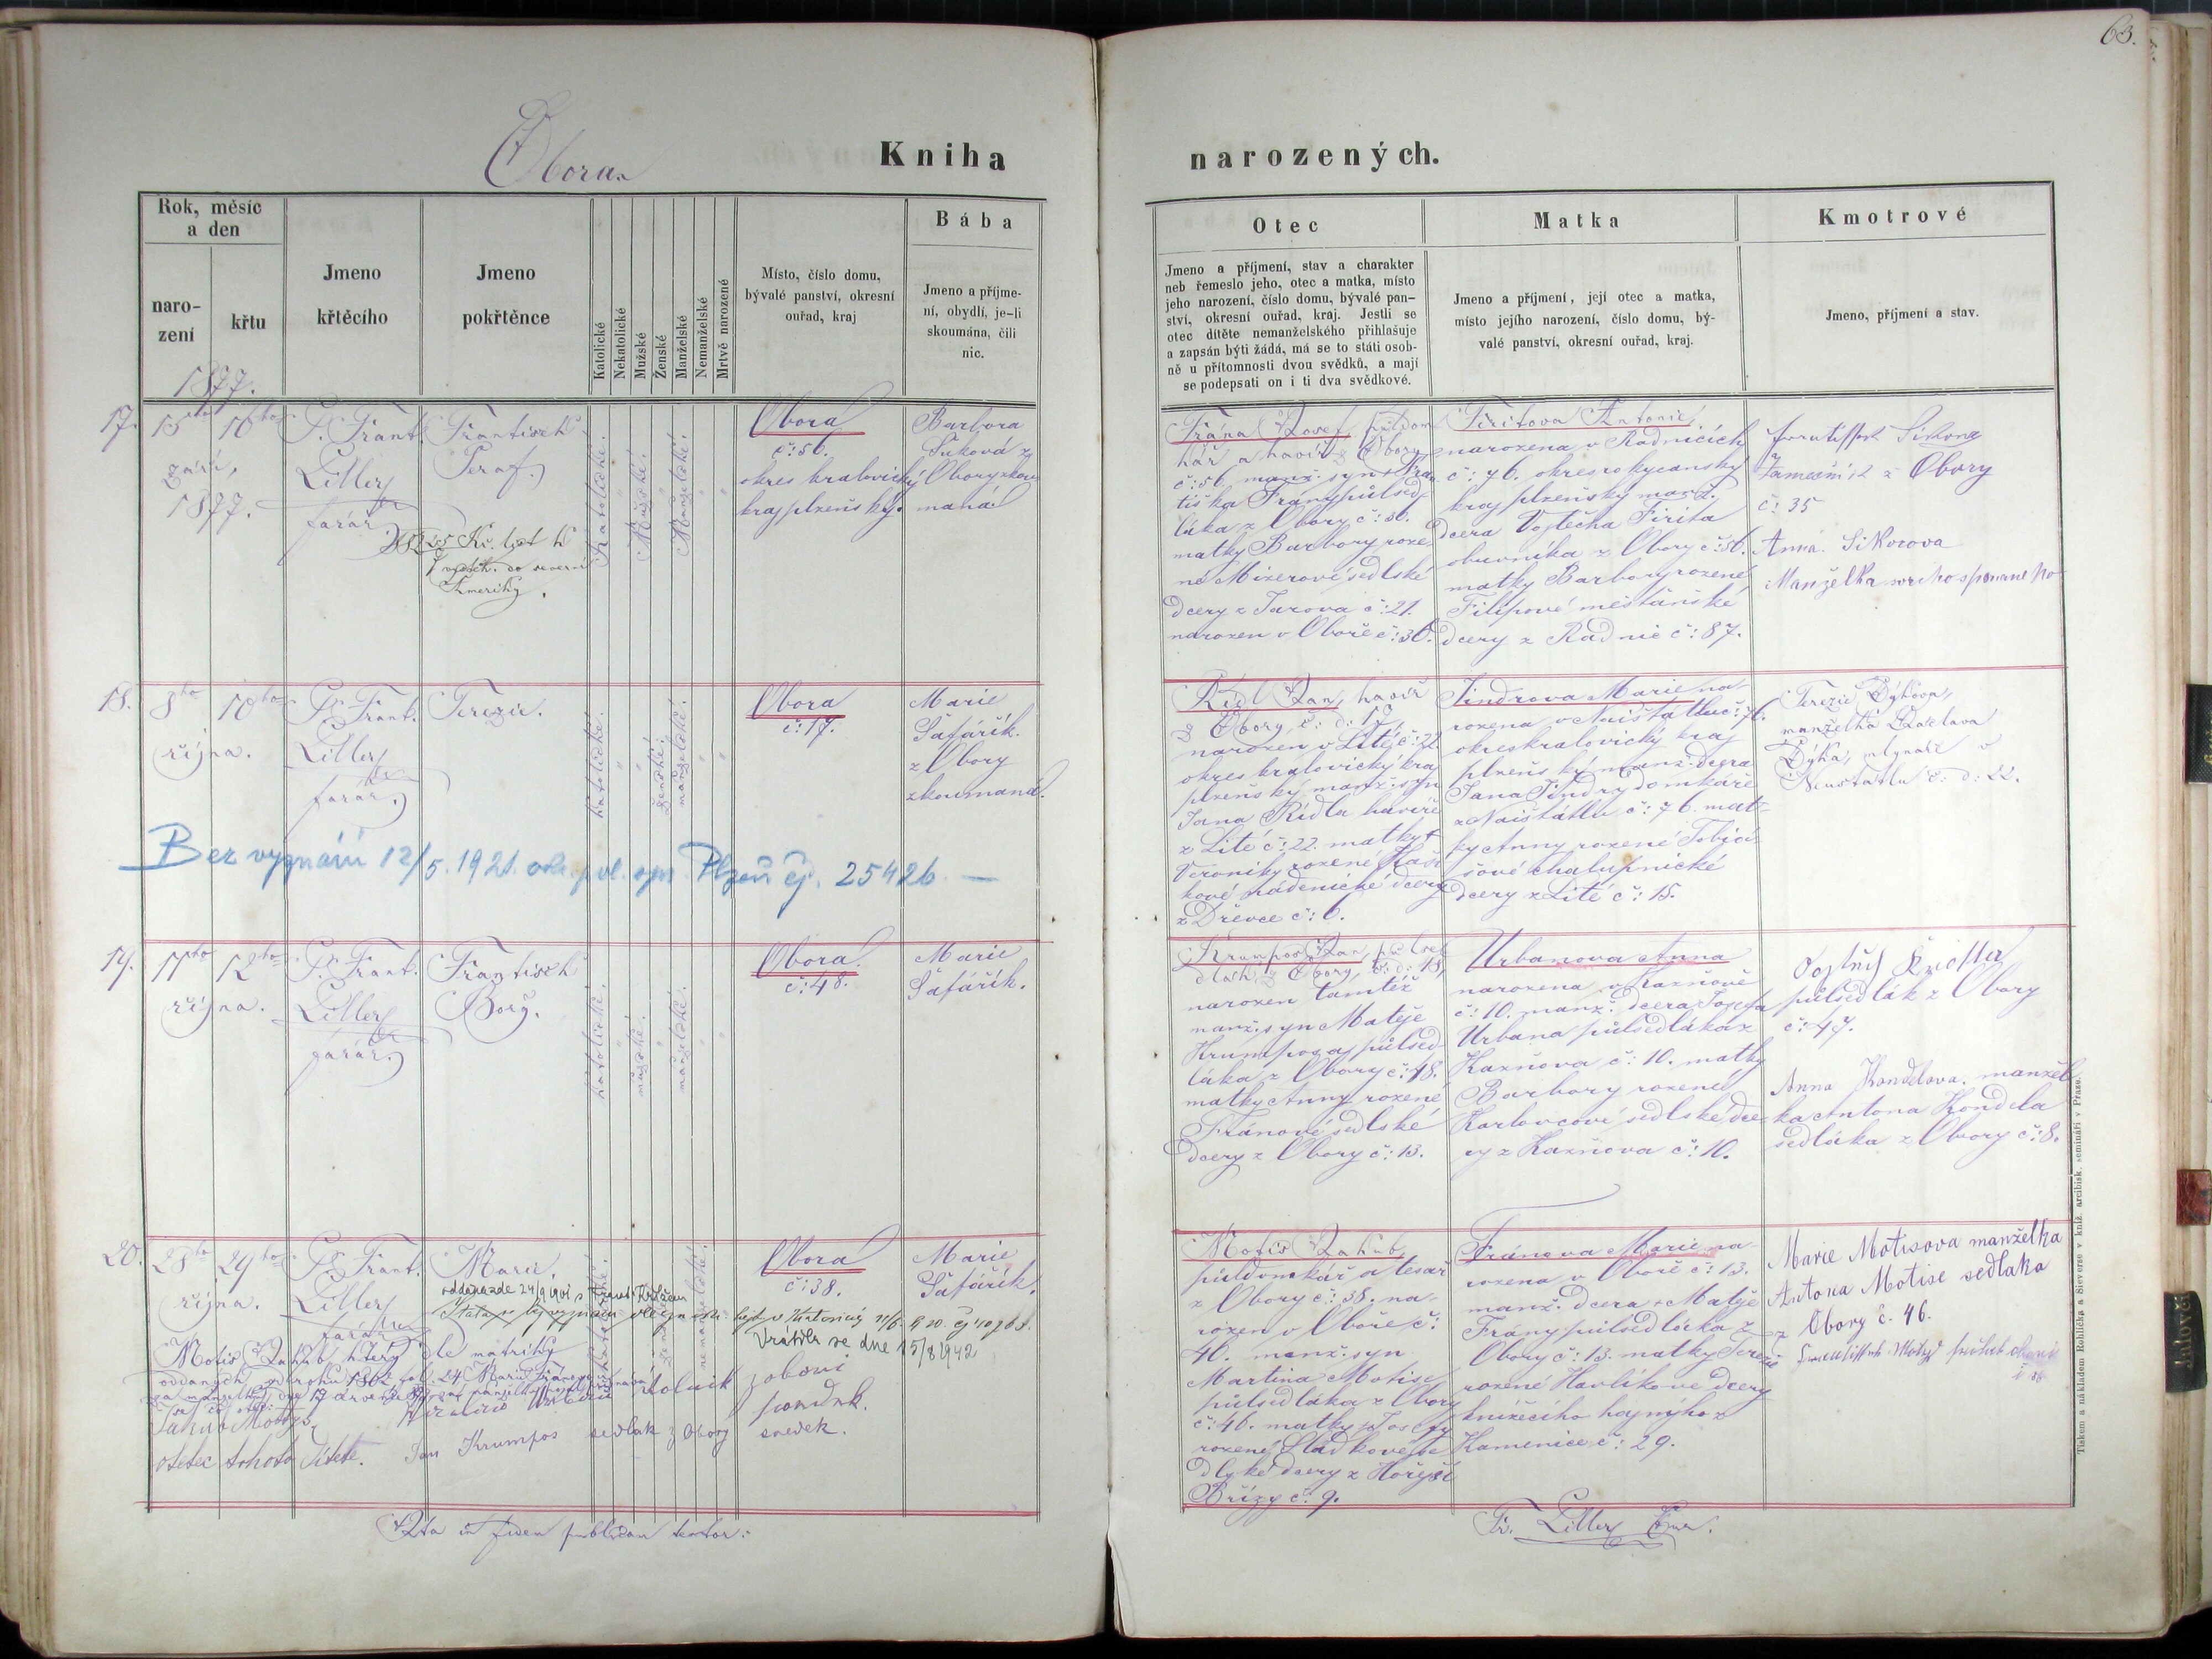 63.
Obora.
Kniha
narozených.
Rok, měsíc
a den
naro-
zení
křtu
Jmeno
křtěcího
Jmeno
pokřtěnce
Katolické
Nekatolické
Mužské
Ženské
Manželské
Nemanželské
Mrtvě narozené
Místo, číslo domu,
bývalé panství, okresní
ouřad, kraj
Bába
Jmeno a příjme-
ní, obydlí, je-li
skoumána, čili
nic.
Otec
Jmeno a příjmení, stav a charakter
neb řemeslo jeho, otec a matka, místo
jeho narození, číslo domu, bývalé pan-
ství, okresní ouřad, kraj. Jestli se
otec dítěte nemanželského přihlašuje
a zapsán býti žádá, má se to státi osob-
ně u přítomnosti dvou svědků, a mají
se podepsati on i ti dva svědkové.
Matka
Jmeno a příjmení, její otec a matka,
místo jejího narození, číslo domu, bý-
valé panství, okresní ouřad, kraj.
Kmotrové
Jmeno, příjmení a stav.
1877.
17.
15to
září,
1877.
16to
P. Frant.
Liller
farář
František
Seraf.
Katolické.
Mužské.
Manželské.
Obora
č: 56.
okres kralovický
kraj plzeňský.
Barbora
Suková z
Obory zkou
maná
Frána Josef, půldom
kář a havíř z Obory
č: 56, manž. syn + Fran
tiška Frány půlsed
láka z Obory č: 36.
matky Barbory roze
né Mizerové sedlské
dcery z Jarova č: 21.
narozen v Oboře č: 36.
Firitova Antonie
narozena v Radnicích
č: 76. okres rokycanský
kraj plzeňský manž.
dcera Vojtěcha Firita
obuvníka z Obory č: 56.
matky Barbory rozené
Filipové měšťanské
dcery z Radnic č: 87.
z Obory
č: 35
Anna Sikorova
Manželka
18.
8ho
října.
10ho
P. Frant.
Liller
farář.
Terezie.
katolické.
ženské.
manželské.
Obora
č: 17.
Marie
Šafářík.
z Obory
zkoumaná.
Rídl Jan, havíř
z Obory, č: d: 17,
narozen v Lité č: 22.
okres kralovický kraj
plzeňský manž: syn
Jana Rídla havíře
z Lité č: 22. matky +
Veroniky rozené Haši
kové nádenické dcery
z Dřevce č: 6.
Jindrova Marie na-
rozena v Naištátlu č: 76.
okres kralovický kraj
plzeňský manž: dcera
Jana Jindry domkáře
z Naištátlu č: 76. mat-
ky Anny rozené Tobiá-
šové chalupnické
dcery z Lité č: 15.
Terezie Dýkova,
manželka Václava
Dýka, mlynáře v
Neustatlu č: d: 22.
Bez vyznání 12/5. 1921. okr. pol. spr. Plzeň čj. 25426. —
19.
11ho
října.
12ho
P. Frant.
Liller
farář.
František
Borg.
katolické.
mužské.
manželské.
Obora.
č: 48.
Marie
Šafářík.
Krumpos Jan, půlsed
lák, z Obory, č: d: 48,
narozen tamtéž
manž: syn Matěje
Krumposa půlsed
láka z Obory č: 48.
matky Anny rozené
Fránové sedlské
dcery z Obory č: 13.
Urbanova Anna
narozena v Kazňově
č: 10. manž: dcera Josefa
Urbana půlsedláka z
Kazňova č: 10. matky
Barbory rozené
Karlovcové sedlské dce-
ry z Kazňova č: 10.
půlsedlák z Obory
č: 47.
Anna Kondelova. manžel
ka Antona Kondela
sedláka z Obory č: 8.
20.
28ho
října.
29ho
P. Frant.
Liller
farář
Marie.
nemanželské.
Obora
č: 38.
Marie
Šafářík.
Vrátila se dne 15/8 1942
Motis Jakub, který dle matriky
rolník z oboři
otetec tohoto dítete.
Jan Krumpos sedlak z Obory svedek.
Motis Jakub,
půldomkář a tesař
z Obory č: 38. na-
rozen v Oboře č:
46. manž: syn
Martina Motise
půlsedláka z Obory
č: 46. matky + Josefy
rozené Sládkové se-
dlské dcery z Hořejší
Břízy č: 9.
Fránova Marie na-
rozena v Oboře č: 13.
manž: dcera + Matěje
Frány půlsedláka z
Obory č: 13. matky Terezie
rozené Havlíkove dcery
knížecího hajného z
Kamenice č: 29.
Marie Motisova manželka
Antona Motise sedlaka
z Obory č. 46.
Ita in fidem publicam testor:
Fr. Liller
Tiskem a nákladem Rohlíčka a Sieverse v kníž. arcibisk. semináři v Praze.